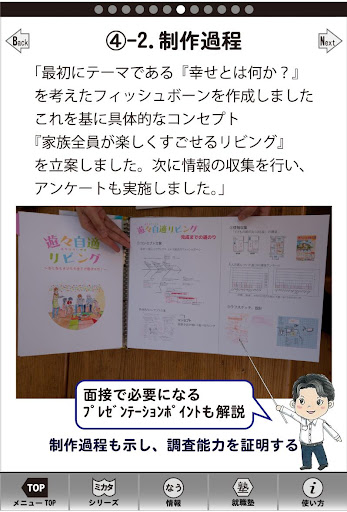 Back
④-2. 制作過程
Next
「最初にテーマである『幸せとは何か？』
を考えたフィッシュボーンを作成しました
これを基に具体的なコンセプト
『家族全員が楽しくすごせるリビング』
を立案しました。次に情報の収集を行い、
アンケートも実施しました。」
遊々自適
リビング
遊々自適リビング
面接で必要になる
ﾌﾟﾚｾﾞﾝﾃｰｼｮﾝﾎﾟｲﾝﾄも解説
制作過程も示し、調査能力を証明する
TOP
メニューTOP
ミカタ
シリーズ
なう
情報
塾
就職塾
i
使い方